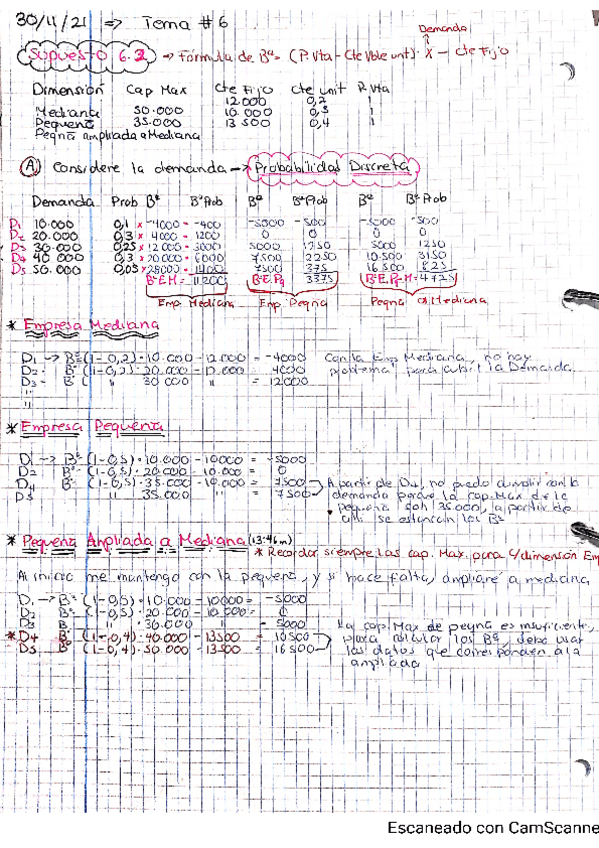 30/11/21 => Tema #6
Demanda
Supuesto 6.2 → Fórmula de Bº = (P.Vta - Cte Vble unt) · X - Cte Fijo
Dimensión Cap Max Cte Fijo Cte unit P.Vta
Mediana 50.000 12000 0,2 1
Pequeña 35.000 10.000 0,5 1
Peqña ampliada a Mediana 13500 0,4 1
(A) Considere la demanda → Probabilidad Discreta
Demanda Prob Bº BºProb Bº BºProb Bº BºProb
D1 10.000 0,1 x -4000 = -400 -5000 -500 -5000 -500
D2 20.000 0,3 x 4000 = 1200 0 0 0 0
D3 30.000 0,25 x 12000 = 3000 5000 1250 5000 1250
D4 40 000 0,3 x 20.000 = 6000 7500 2250 10.500 3150
D5 50.000 0,05 x 28000 = 1400 7500 375 16 500 825
BºEM = 11200 B.E.Pq 3375 B.E.Pq-M = 4725
Emp Mediana Emp Peqna Peqna a Mediana
* Empresa Mediana
D1 → Bº = (1-0,2) · 10.000 - 12.000 = -4000 Con la Emp Mediana, no hay
D2 · Bº (1-0,2) · 20.000 - 12.000 = 4000 problema para cubrir la Demanda
D3 - Bº ( " 30 000 " = 12000
"
"
* Empresa Pequeña
D1 → Bº (1-0,5) · 10.000 - 10000 = -5000
D2 Bº (1-0,5) · 20.000 - 10.000 = 0
D4 Bº (1-0,5) · 35.000 - 10.000 = 7500 → A partir de D4, no puedo cumplir con la
D5 " 35.000 " = 7500 demanda porque la cap. Max de la
pequeña son 35000, a partir de
allí se estancan los Bº
* Pequeña Ampliada a Mediana (13:46m)
* Recordar siempre las cap. Max. para c/dimensión Emp
Al inicio me mantengo con la pequeña, y si hace falta, ampliaré a mediana
D1 → Bº (1-0,5) · 10.000 - 10000 = -5000
D2 Bº (1-0,5) · 20.000 - 10.000 = 0
D3 Bº " 30.000 " 5000 La cap. Max de peqña es insuficiente,
* D4 Bº (1-0,4) · 40.000 - 13500 = 10500 para calcular los Bº, debo usar
D5 Bº (1-0,4) · 50.000 - 13500 = 16500 los datos que corresponden a la
ampliada
Escaneado con CamScanne